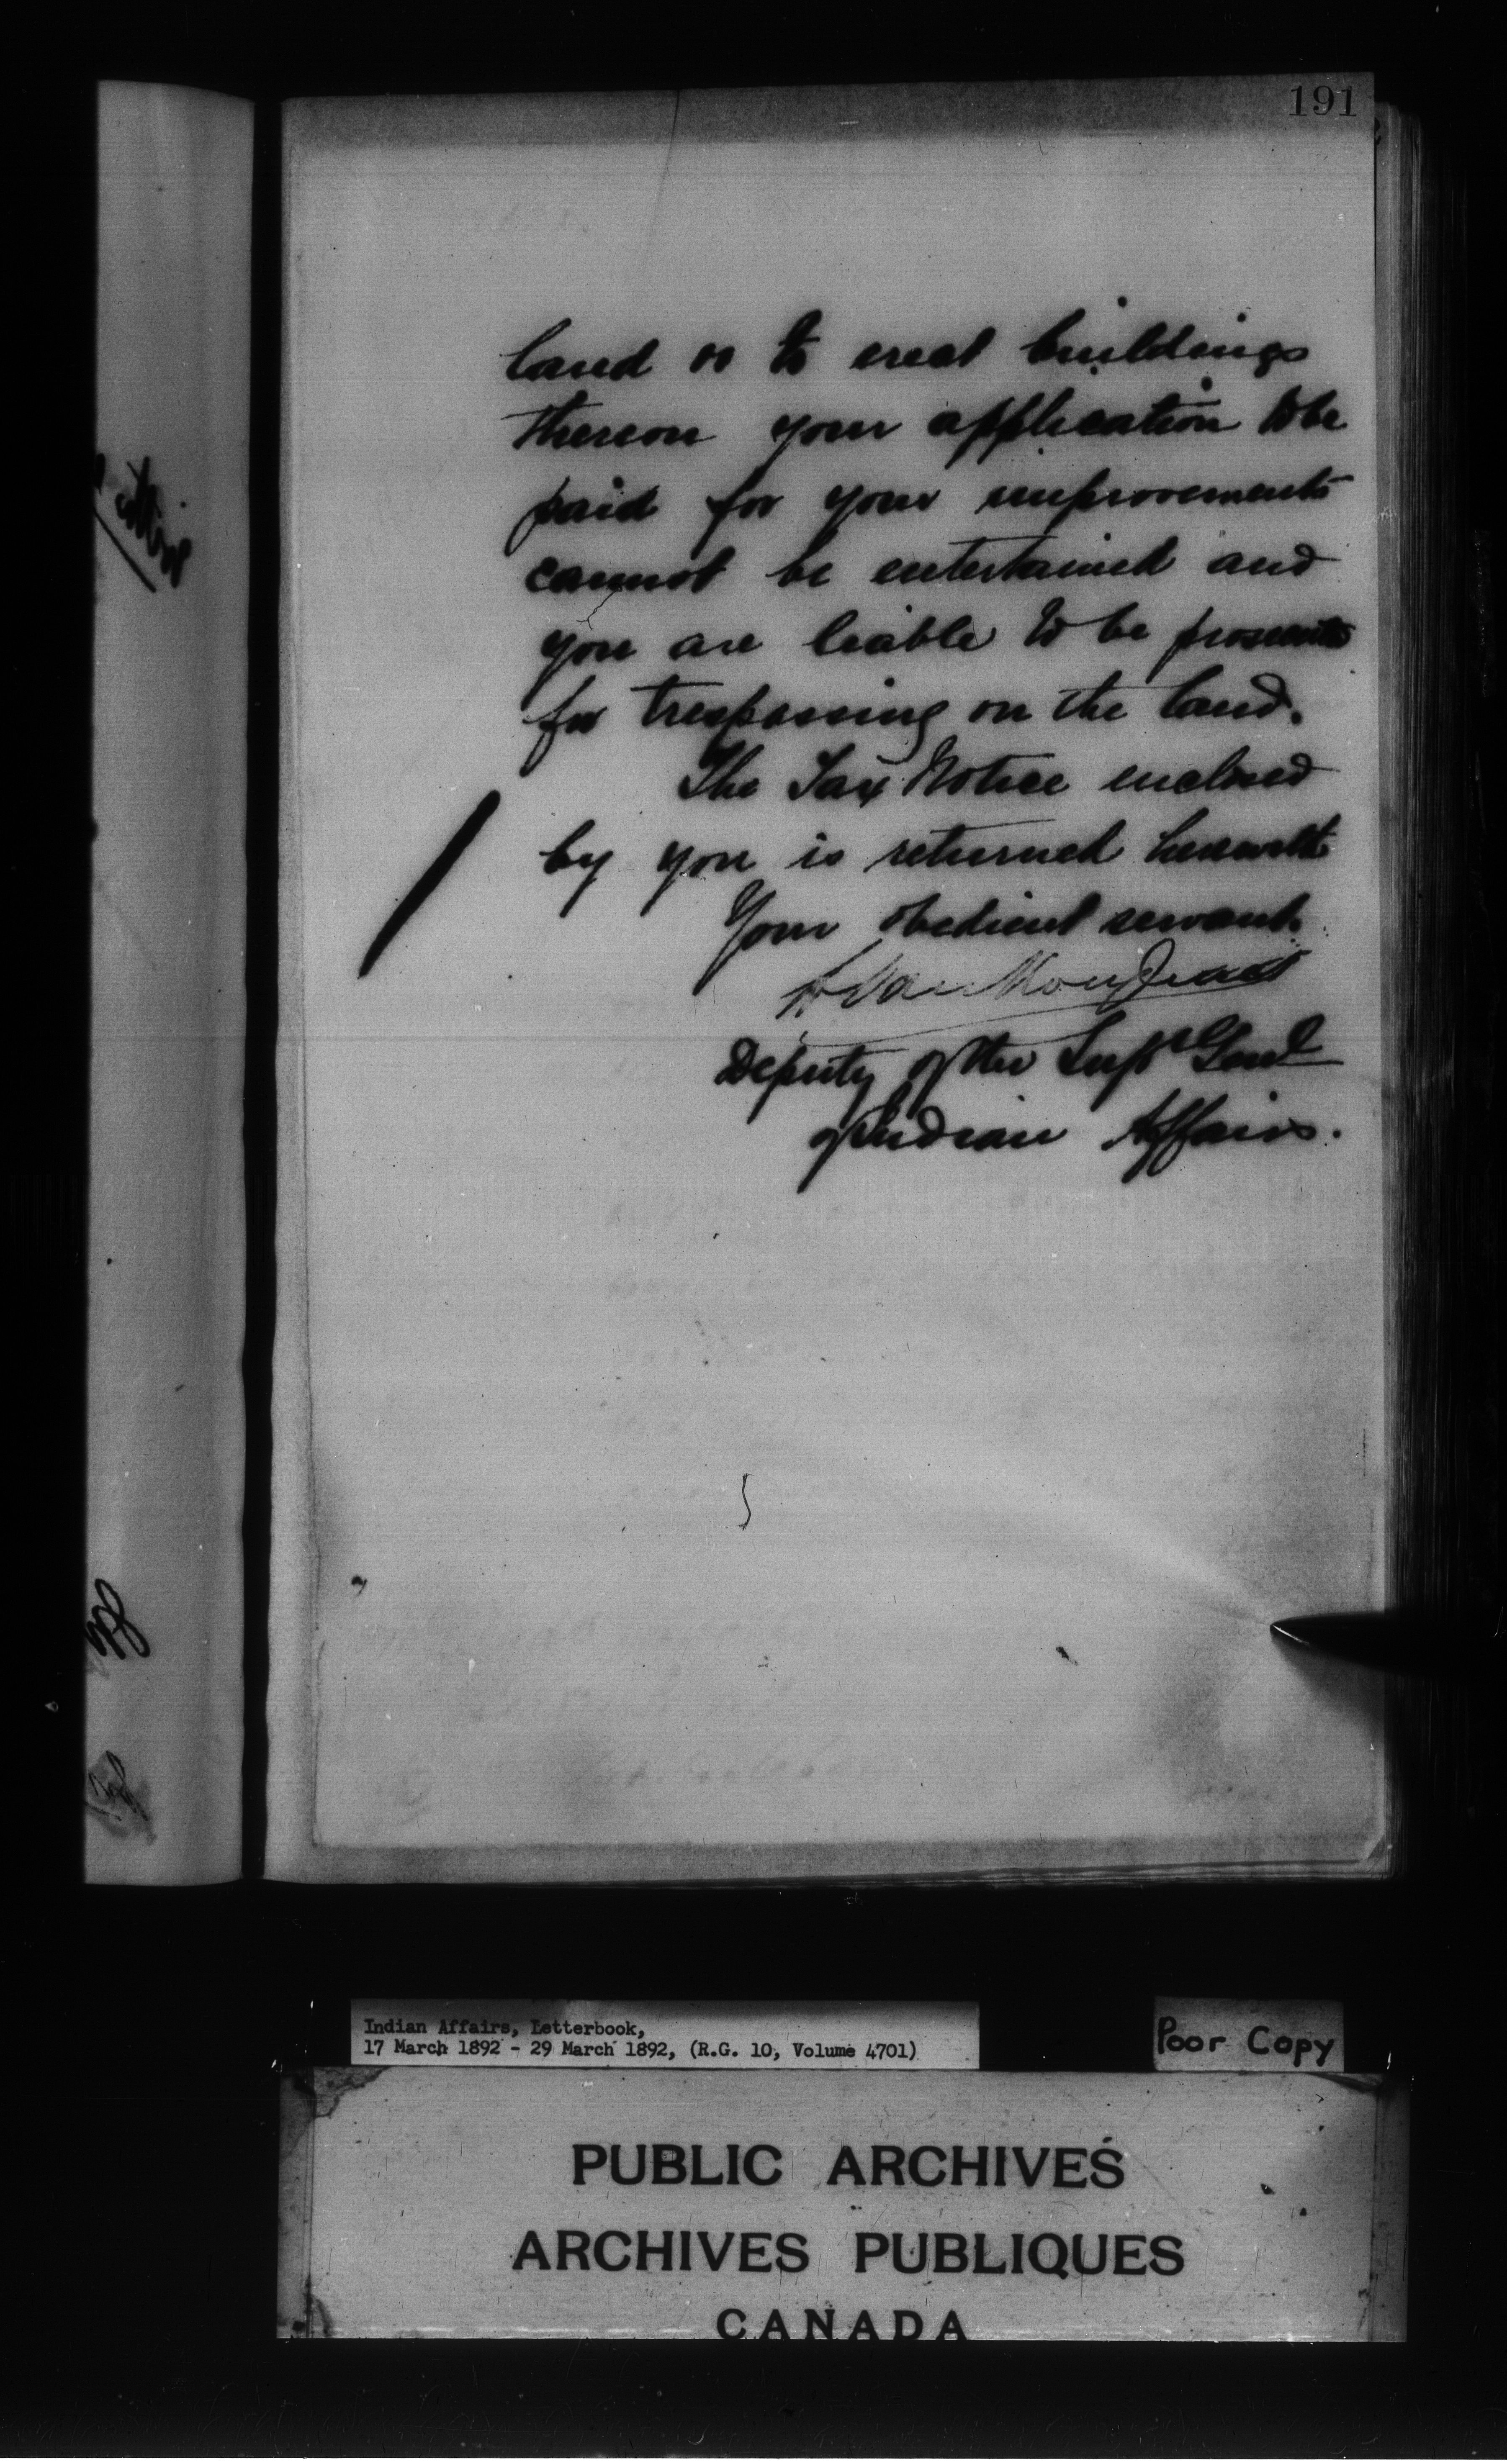 191
land or to erect buildings
thereon your application to be
paid for your improvements
cannot be entertained and
you are liable to be prosecuted
for trespassing on the land.
The Tax Notice enclosed
by you is returned herewith
Your obedient servant.
L VanKoughnet
Deputy of the Supt Genl
of Indian Affairs.
Indian Affairs, Letterbook,
17 March 1892 - 29 March 1892, (R.G. 10, Volume 4701)
Poor Copy
PUBLIC ARCHIVES
ARCHIVES PUBLIQUES
CANADA